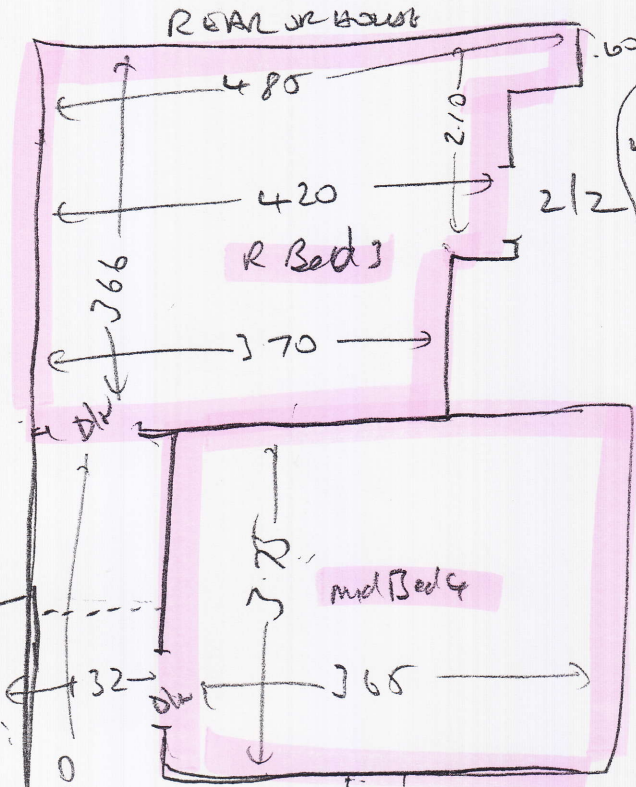 REAR OF HOUSE
.60
485
2.10
420
2/2
R Bed 3
366
3.70
D/w
3.75
mid Bed 4
32
D/w
365
0